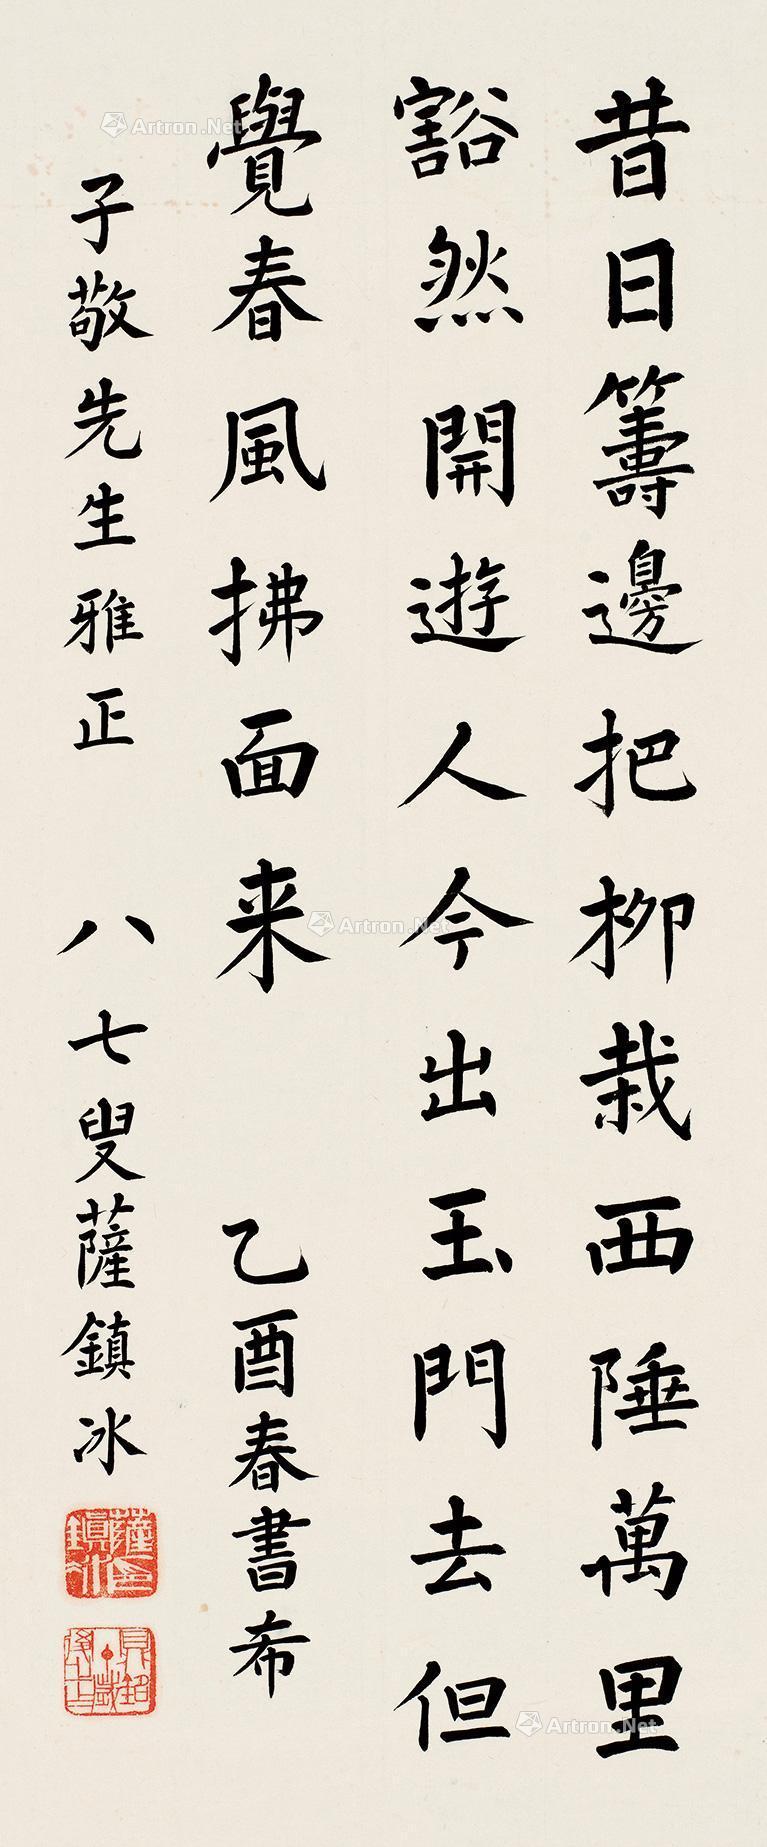 昔日籌邊把柳栽西陲萬里
豁然開遊人今出玉門去但
覺春風拂面来
乙酉春書希
子敬先生雅正
八七叟薩鎮冰
Artron.Net
Artron.Net
Artron.Net